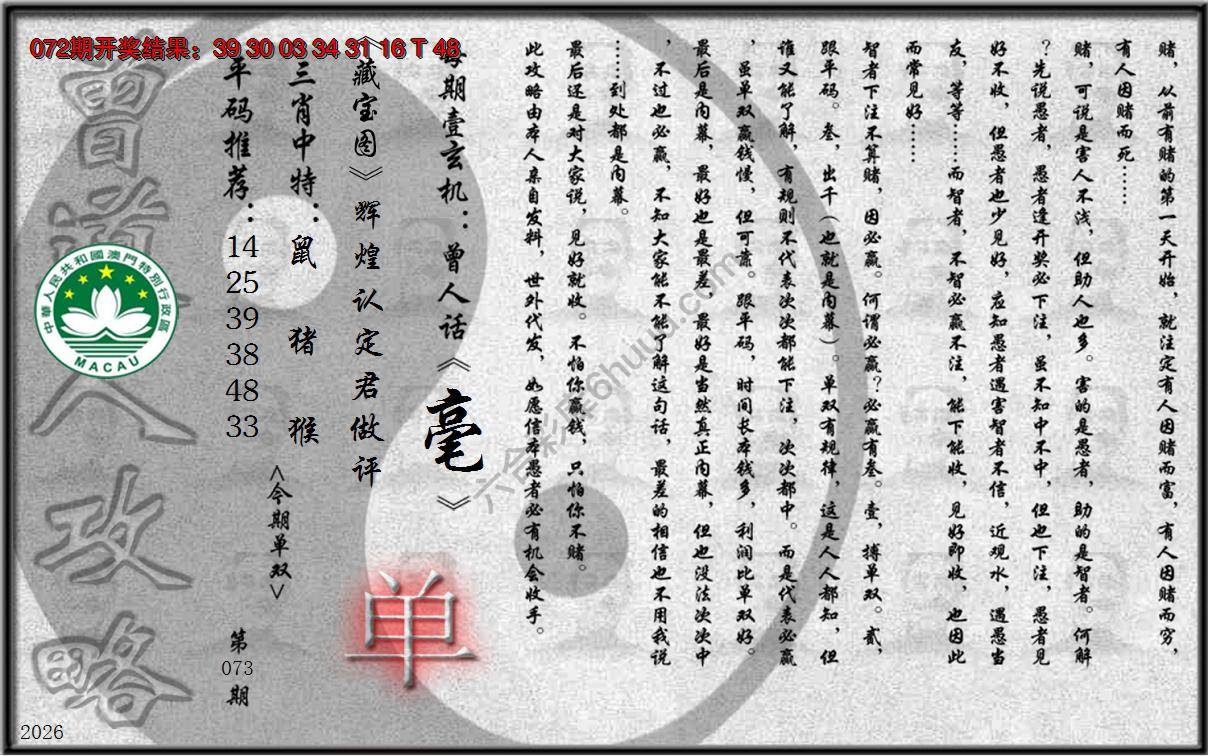 072期开奖结果：39 30 03 34 31 16 T 48
赌，从前有赌的第一天开始，就注定有人因赌而富，有人因赌而穷，
有人因赌而死……
赌，可说是害人不浅，但助人也多。害的是愚者，助的是智者。何解
？先说愚者，愚者逢开奖必下注，虽不知中不中，但也下注，愚者见
好不收，但愚者也少见好，应知愚者遇害智者不信，近观水，遇愚当
友，等等……而智者，不智必赢不注，能下能收，见好即收，也因此
而常见好……
智者下注不算赌，因必赢。何谓必赢？必赢有叁。壹，搏单双。贰，
跟平码。叁，出千（也就是内幕）。单双有规律，这是人人都知，但
谁又能了解，有规则不代表次次都能下注，次次都中。而是代表必赢
，虽单双赢钱慢，但可靠。跟平码，时间长本钱多，利润比单双好。
最后是内幕，最好也是最差，最好是当然真正内幕，但也没法次次中
，不过也必赢，不知大家能不能了解这句话，最差的相信也不用我说
……到处都是内幕。
最后还是对大家说，见好就收。不怕你赢钱，只怕你不赌。
此攻略由本人亲自发料，世外代发，如愿信本愚者必有机会收手。
每期壹玄机：曾人话《毫》
《藏宝图》辉煌认定君做评
三肖中特：鼠 猪 猴
平码推荐：14 25 39 38 48 33
<今期单双>
单
第
073
期
曾道人攻略
中華人民共和國澳門特別行政區
MACAU
2026